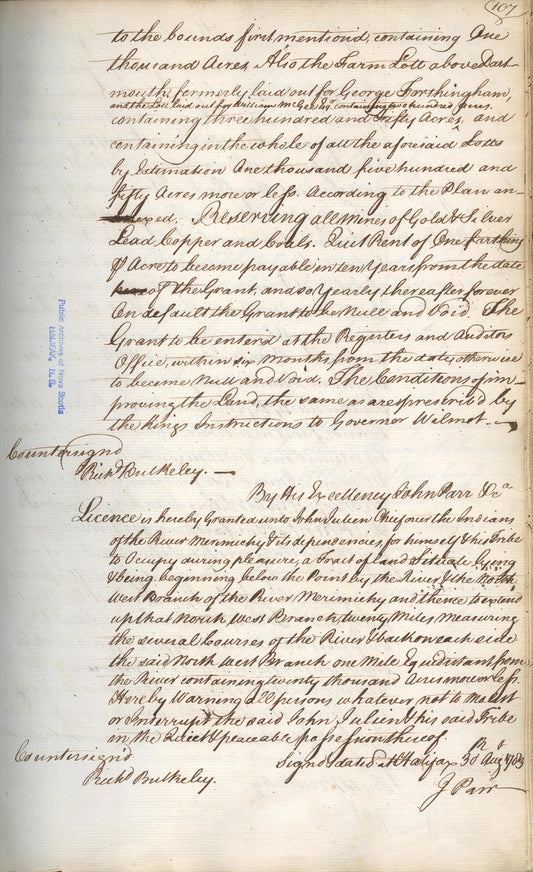 107
to the bounds first mentiond, containing One
thousand Acres, Also the Farm Lott above Dart-
mouth formerly laid out for George Forthingham,
and the Lott laid out for William McGee Esqr. containing two hundred Acres.
containing three hundred and Fifty Acres, and
containing in the whole of all the aforesaid Lotts
by Estimation One thousand five hundred and
fifty Acres more or less. According to the Plan an-
nexed. Reserving all mines of Gold & Silver
Lead Copper and Coals. Quit Rent of One farthing
⅌ Acre to become payable in ten Years from the date
of the Grant, and so Yearly thereafter forever
On default the Grant to be Null and Void. The
Grant to be enterd at the Registers and Auditors
Office, within six Months from the date, otherwise
to become Null and Void. The Conditions of im-
proving the Land, the same as are prescrib'd by
the Kings Instructions to Governor Wilmot.
Countersignd
Richd. Bulkeley.
By His Excellency John Parr &ca
Licence is hereby Granted unto John Julien Chief over the Indians
of the River Merimichy & its dependencies, for himself & his Tribe
to Occupy during pleasure, a Tract of land Situate lying
& being, beginning below the Point by the River & the North
West Branch of the River Merimichy and thence to extend
up that North West Branch, twenty Miles measuring
the several Courses of the River & back on each side
the said North West Branch one Mile Equidistant from
the River containing twenty thousand Acres more or less.
Hereby Warning all persons whatever not to Molest
or Interrupt the said John Julien & his said Tribe
in the Quiet & peaceable possession thereof.
Signd & dated at Halifax 30th Augt. 1783
Countersign'd
Richd Bulkeley.
J Parr
Public Archives of Nova Scotia
HALIFAX, N. S.